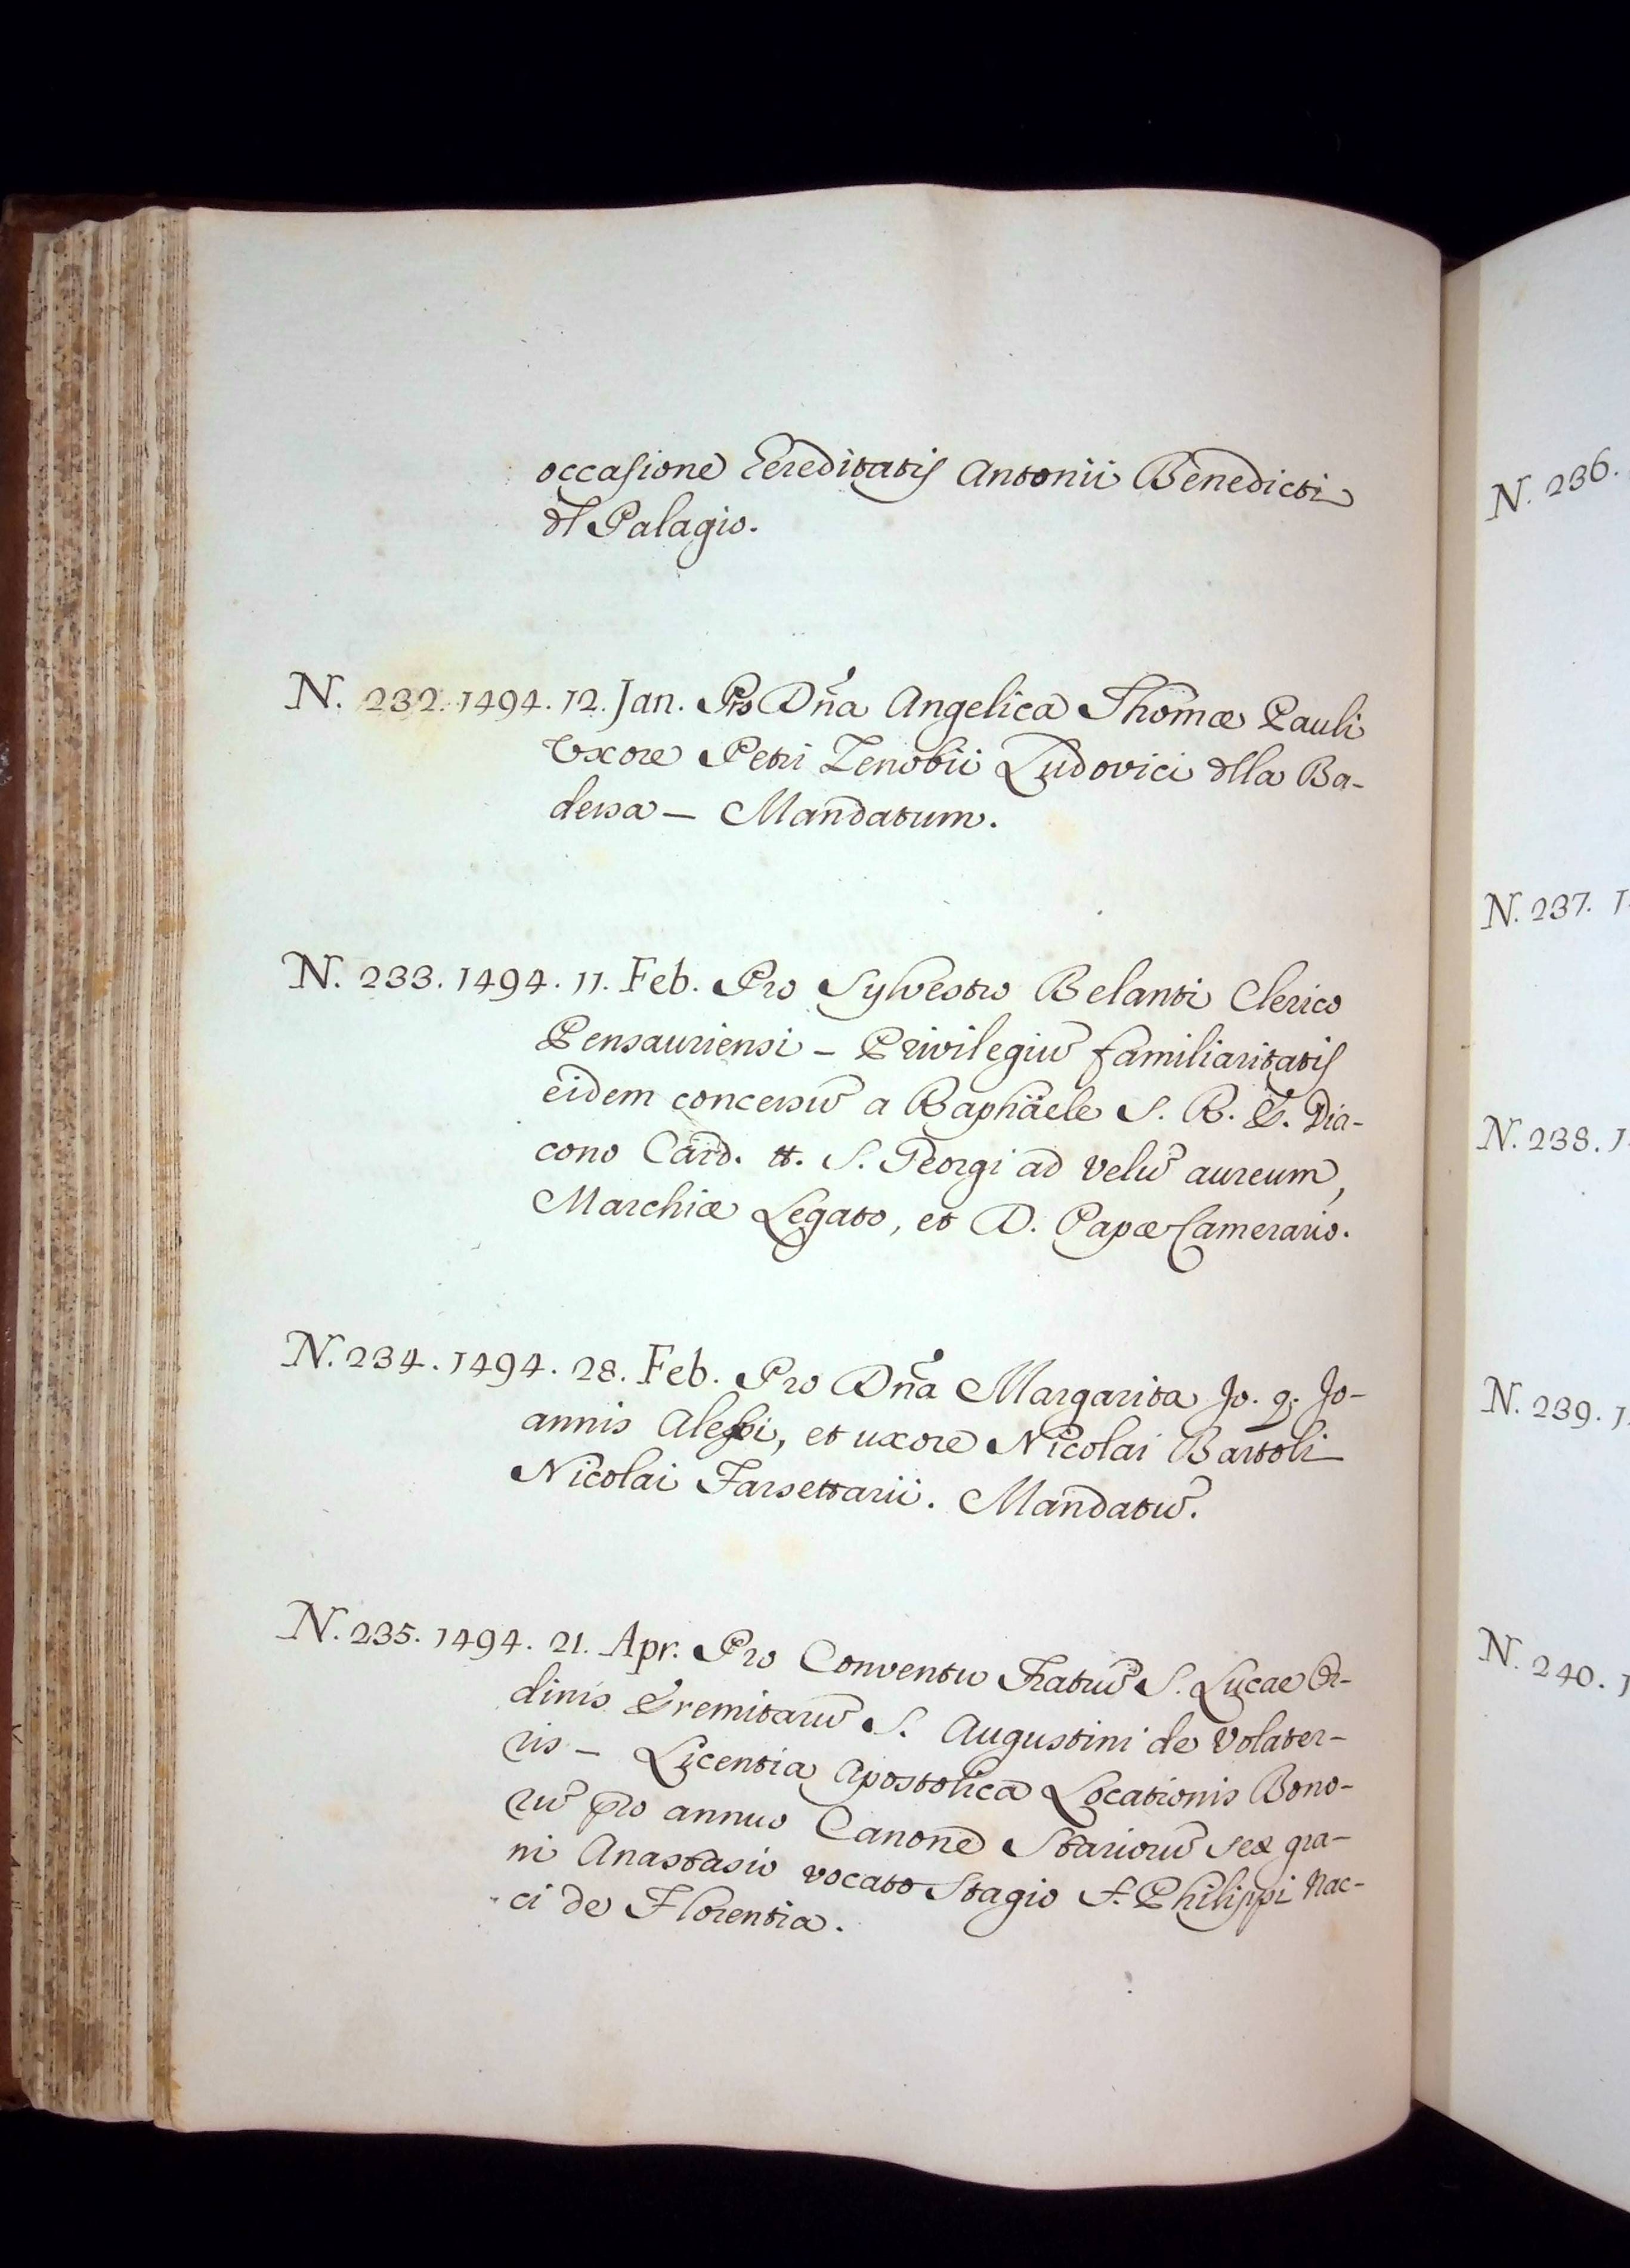 occasione Hereditatis Antonii Benedicti
dl Palagio.
N. 232. 1494. 12. Jan. Pro Dña Angelica Thomæ Pauli
Uxore Petri Zenobii Ludovici dlla Ba-
dessa — Mandatum.
N. 233. 1494. 11. Feb. Pro Sylvestro Belanti Clerico
Pensauriensi — Privilegiū familiaritatis
eidem concessū a Raphäele S. R. E. Dia-
cono Card. tt. S. Georgi ad velū aureum,
Marchiæ Legato, et D. Papæ Camerario.
N. 234. 1494. 28. Feb. Pro Dña Margarita Jo. q. Jo-
annis Alessi, et uxore Nicolai Bartoli
Nicolai Farsettarii. Mandatū.
N. 235. 1494. 21. Apr. Pro Conventu Fratrū S. Lucae Or-
dinis Eremitarū S. Augustini de Volater-
ris — Licentia Apostolica Locationis Bono-
rū pro annuo Canone Stariorū sex gra-
ni Anastasio vocato Stagio S. Philippi Nac-
ci de Florentia.
N. 236.
N. 237. 1
N. 238. 1
N. 239. 1
N. 240. 1